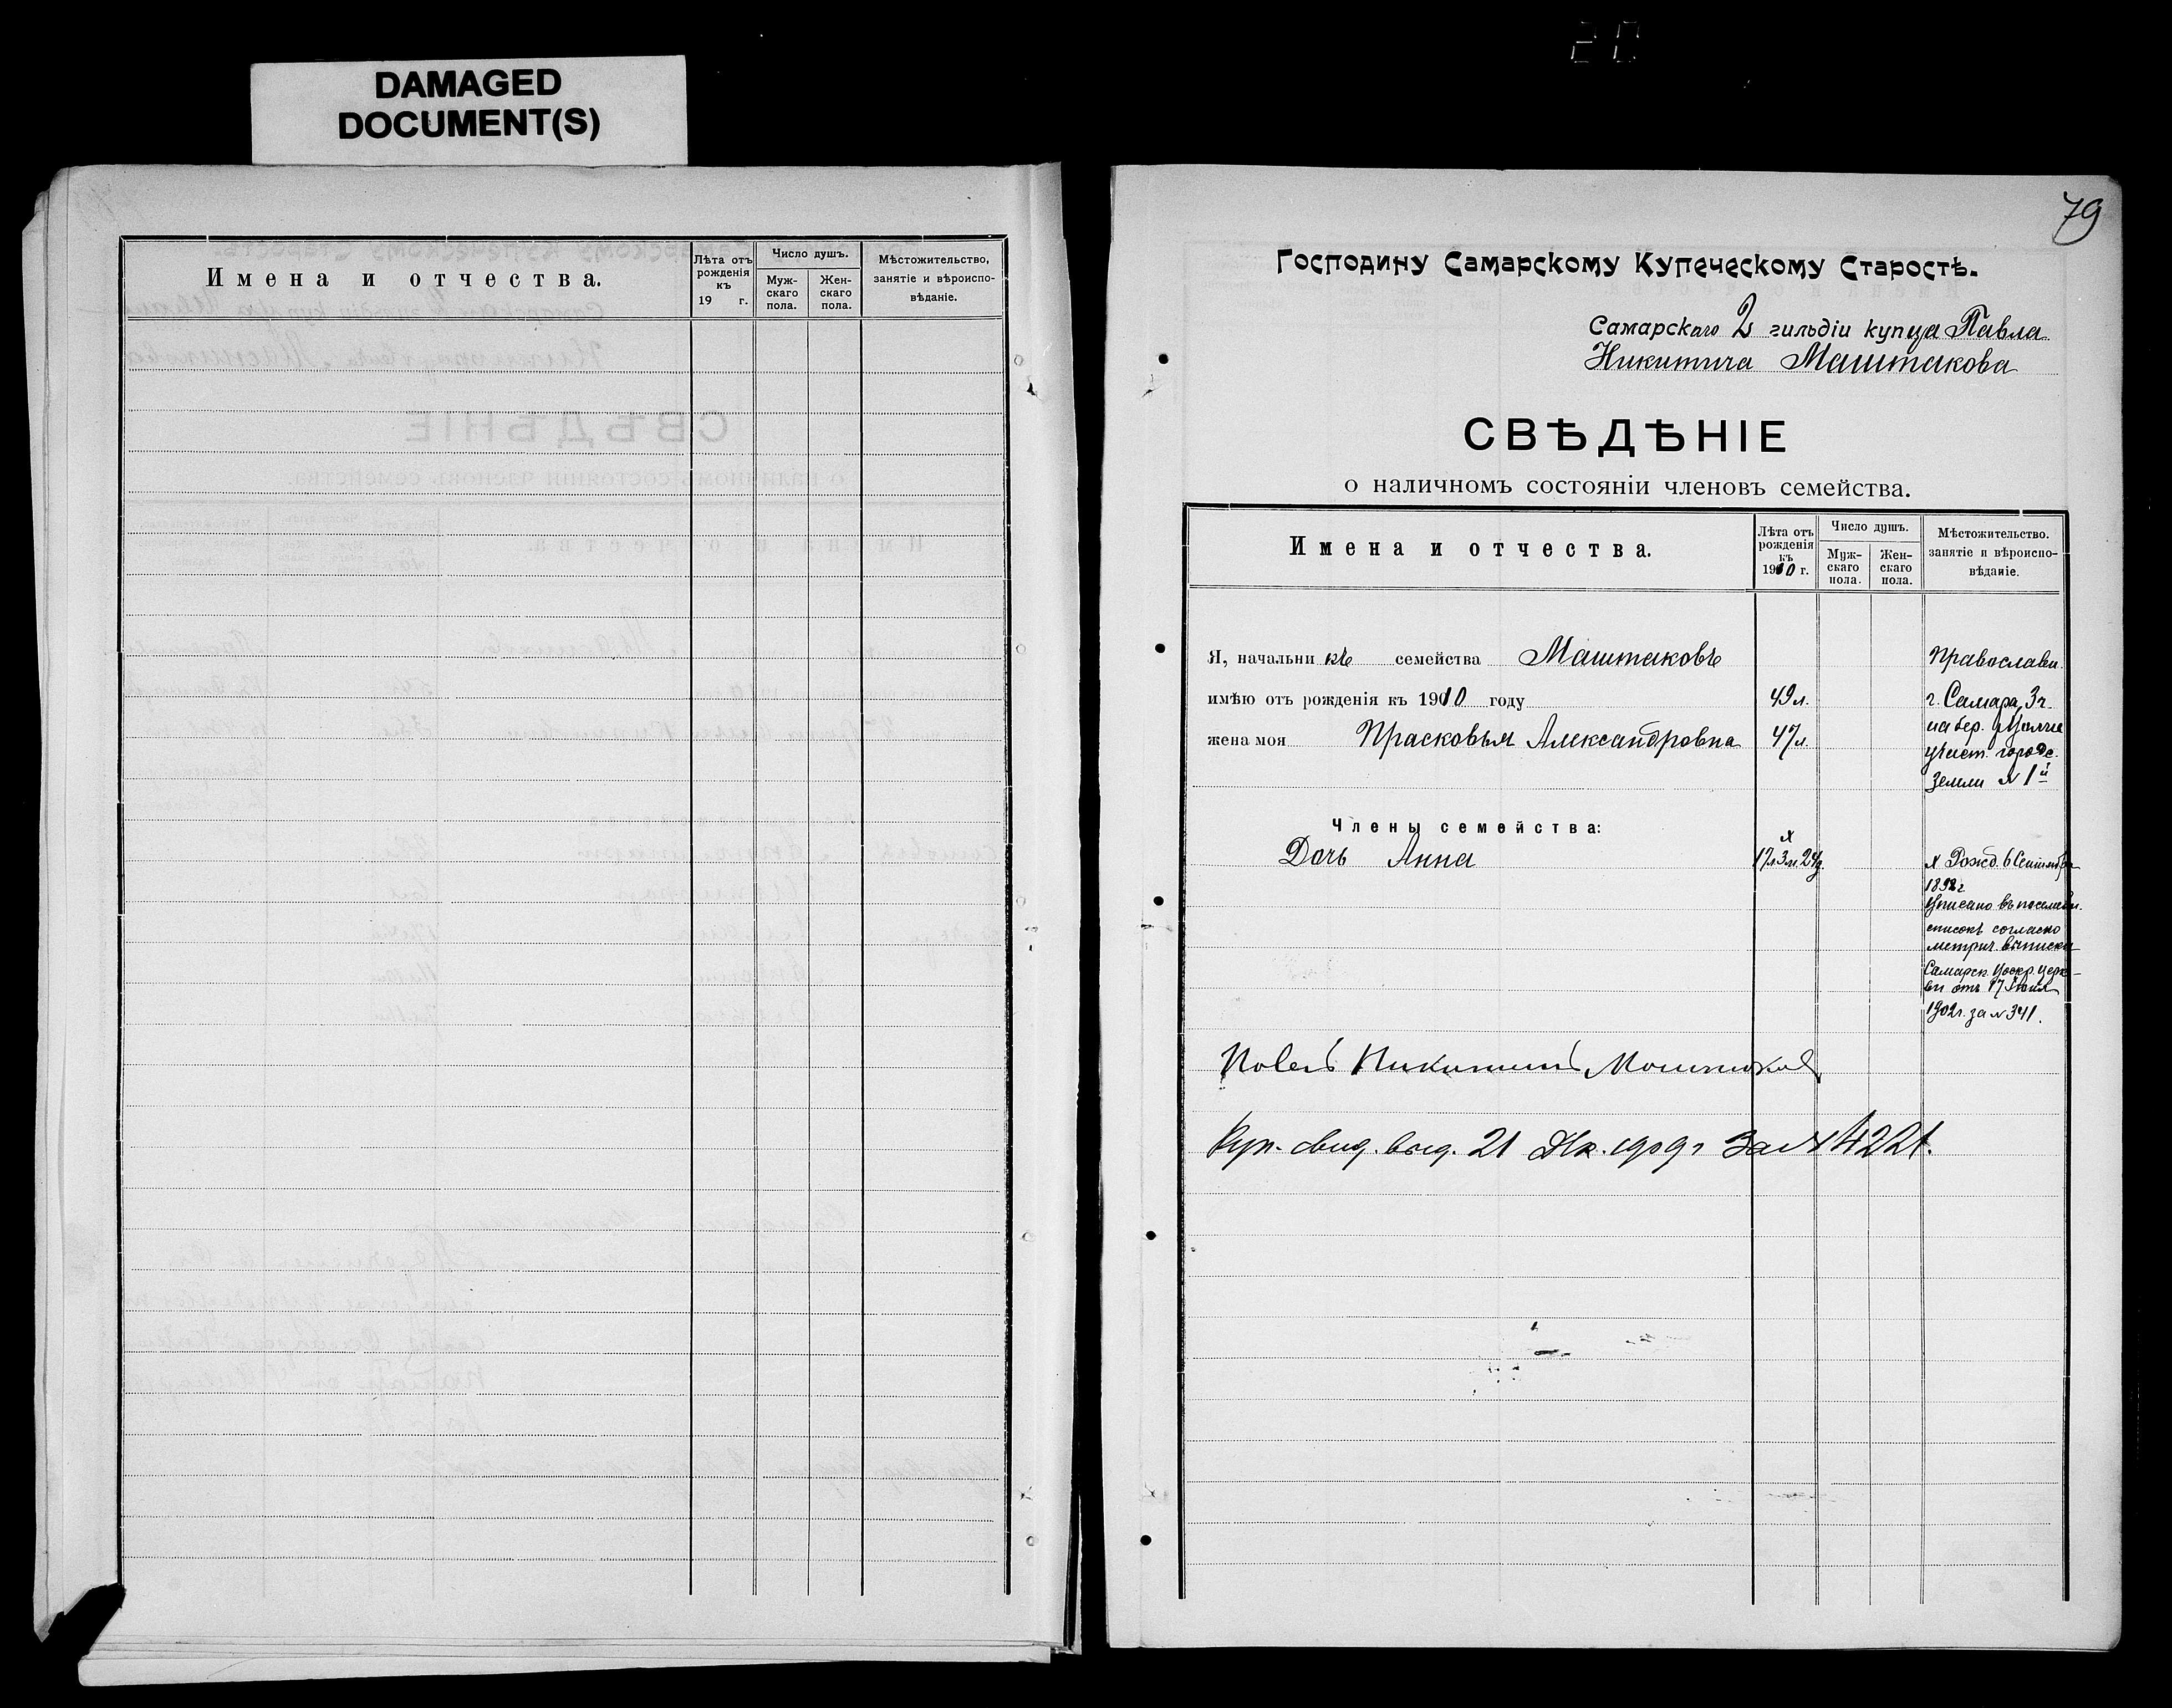 20
DAMAGED
DOCUMENT(S)
Имена и отчества.
Лѣта отъ рожденія къ 19 г.
Число душъ.
Муж-скаго пола.
Жен-скаго пола.
Мѣстожительство, занятіе и вѣроиспо-вѣданіе.
79
Господину Самарскому Купеческому Старостѣ.
Самарскаго 2 гильдіи купца Павла
Никитича Маштакова
СВѢДѢНІЕ
о наличномъ состояніи членовъ семейства.
Имена и отчества.
Лѣта отъ рожденія къ 1910 г.
Число душъ.
Муж-скаго пола.
Жен-скаго пола.
Мѣстожительство. занятіе и вѣроиспо-вѣданіе.
Я, начальникъ семейства Маштаковъ
Православн.
имѣю отъ рожденія къ 1910 году 49 л.
г. Самара, 3 ч.
жена моя Прасковья Александровна 47 л.
на бер. Волги
участ. городс.
земли № 1й
Члены семейства:
х
Дочь Анна 17 л. 3 м. 24 д.
х Рожд. 6 Сентября
1892 г
списокъ согласно
метрич. выписки
Самарск. Воскр. церк-
ви отъ 17 Іюля
1902 г. за № 341.
Повелъ Никитичъ Моштоков
Куп. свид. выд. 21 Дк. 1909 г За № 4221.